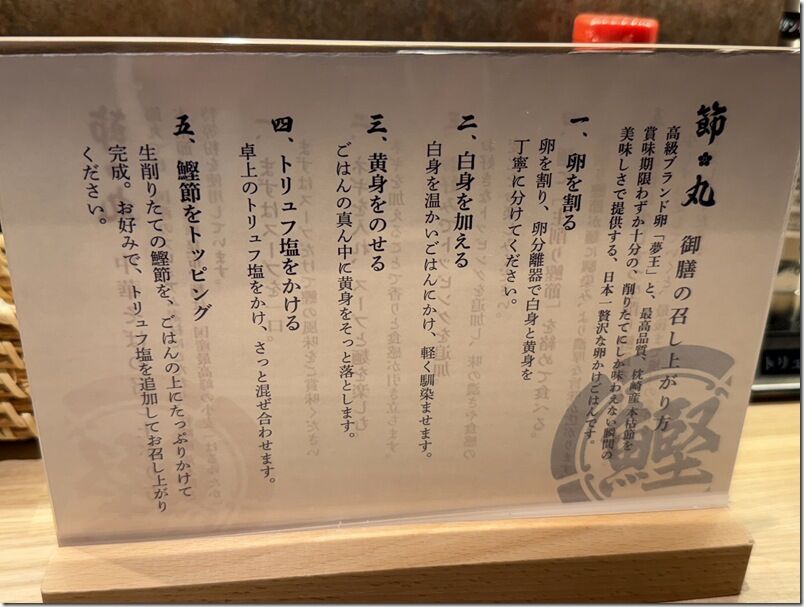 節丸 御膳の召し上がり方
高級ブランド卵「夢王」と、最高品質、枕崎産本枯節を
賞味期限わずか十分の、削りたてにしか味わえない瞬間の
美味しさで提供する、日本一贅沢な卵かけごはんです。
一、卵を割る
卵を割り、卵分離器で白身と黄身を
丁寧に分けてください。
二、白身を加える
白身を温かいごはんにかけ、軽く馴染ませます。
三、黄身をのせる
ごはんの真ん中に黄身をそっと落とします。
四、トリュフ塩をかける
卓上のトリュフ塩をかけ、さっと混ぜ合わせます。
五、鰹節をトッピング
生削りたての鰹節を、ごはんの上にたっぷりかけて
完成。お好みで、トリュフ塩を追加してお召し上がり
ください。
鰹